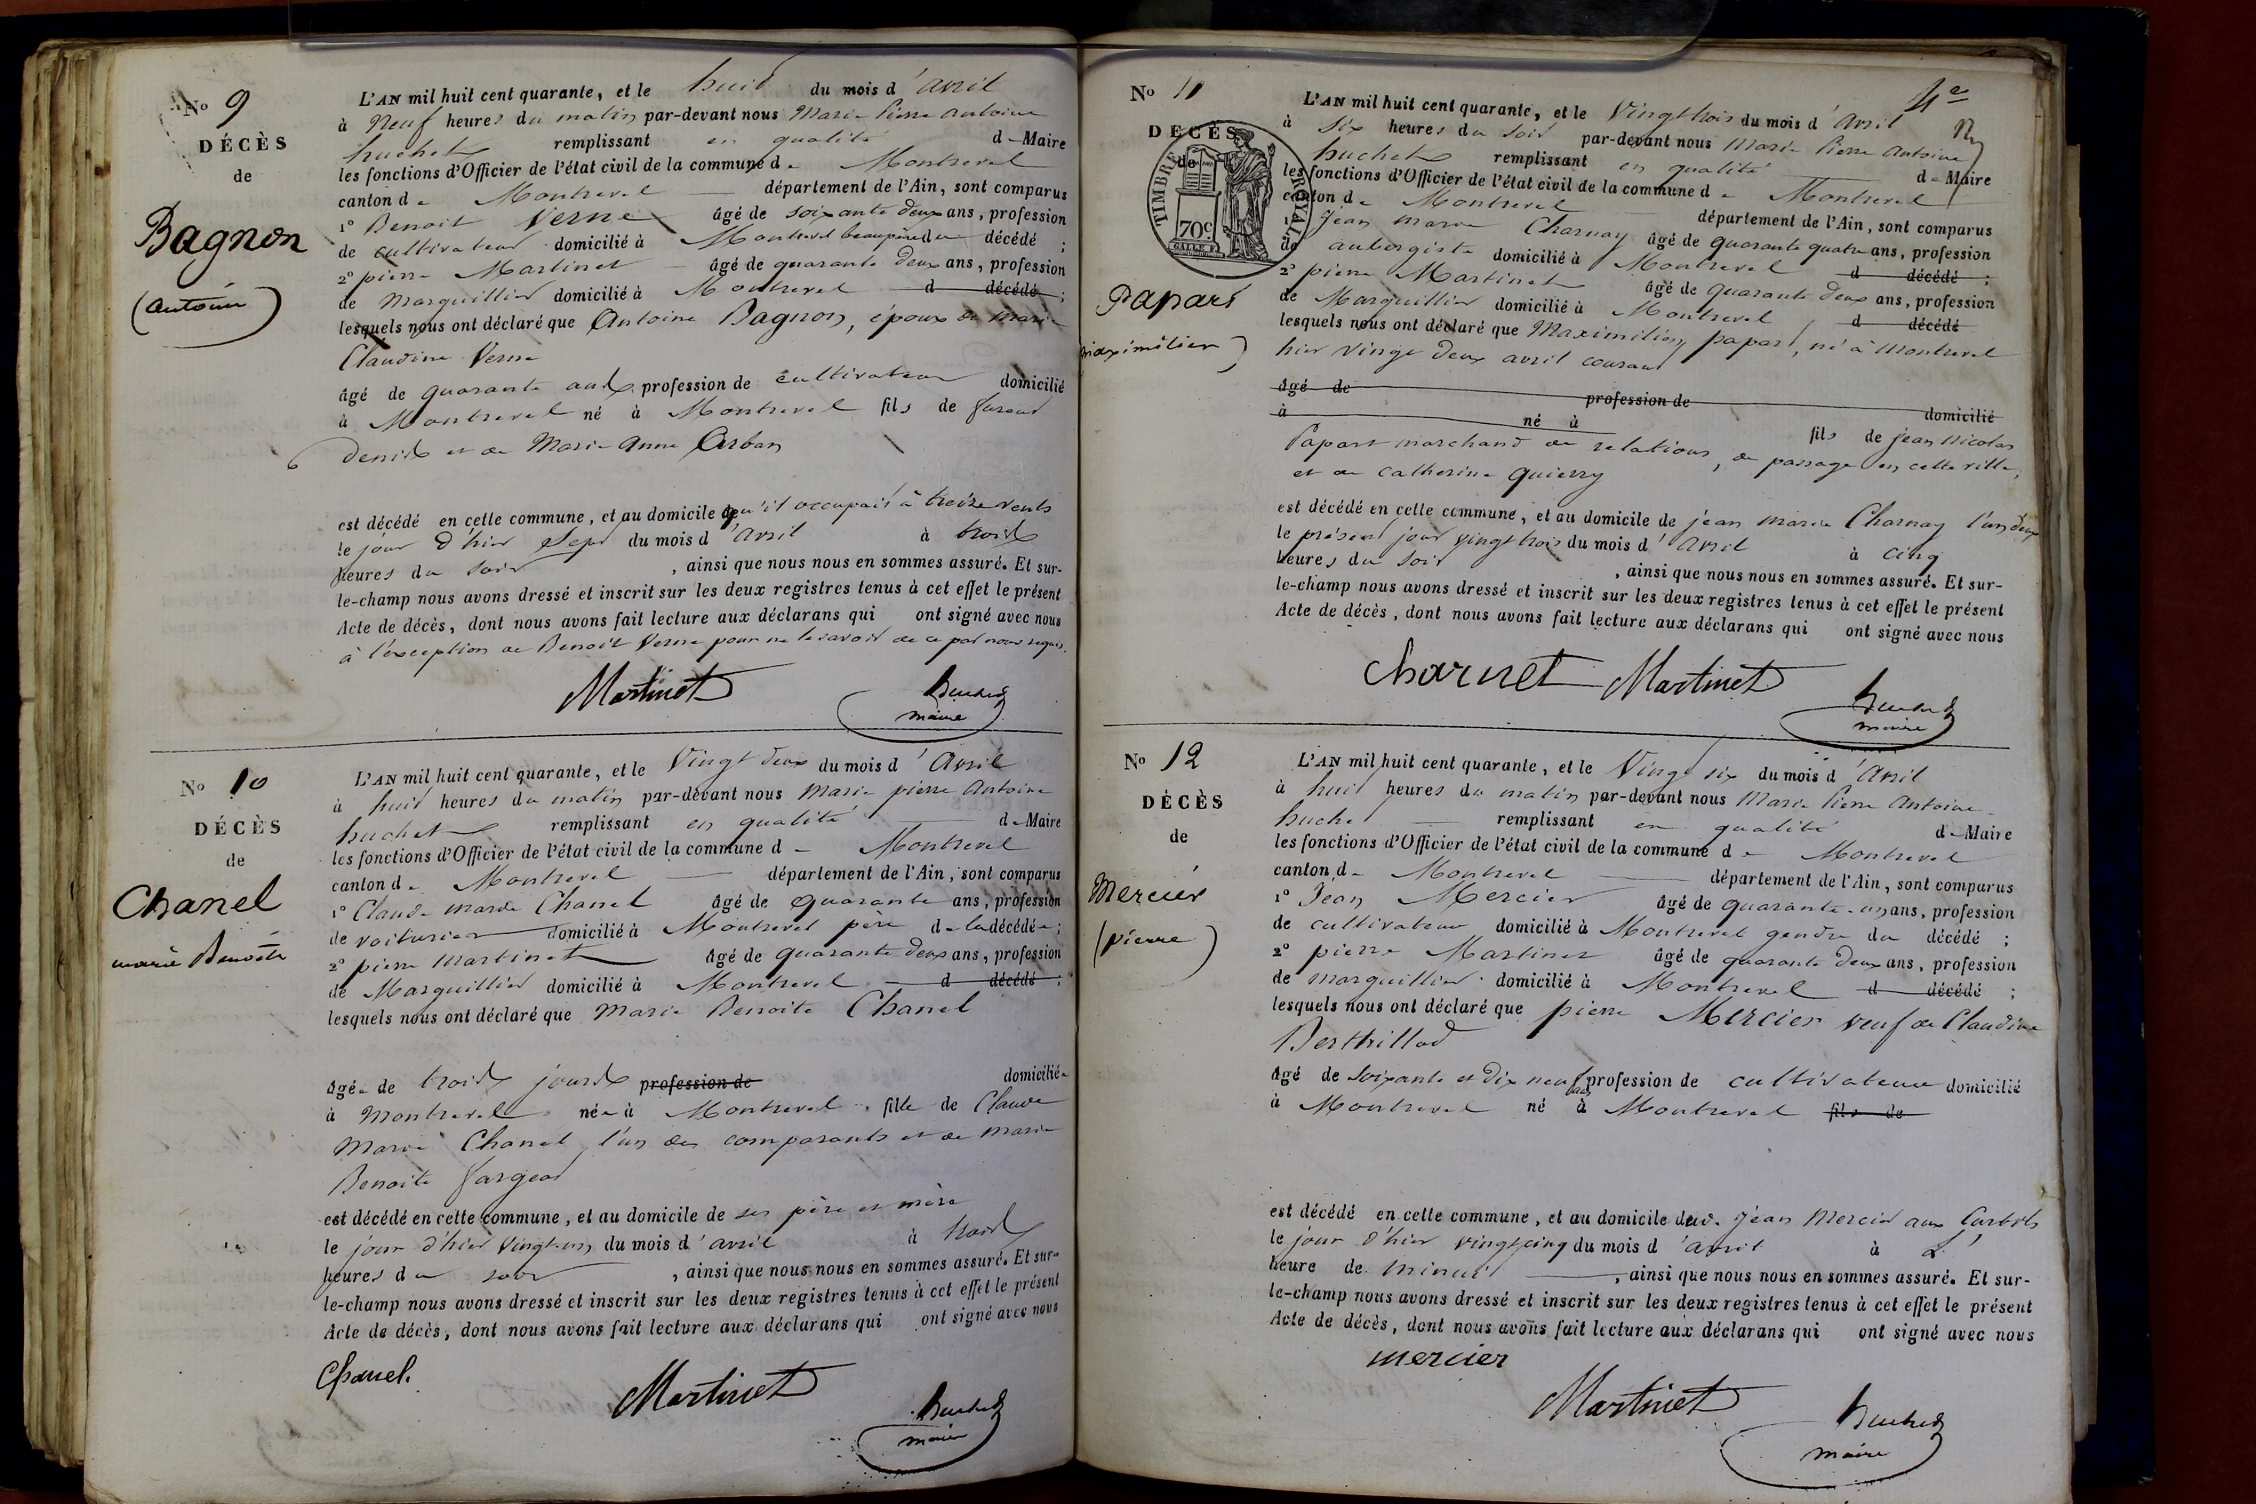 No 9
DÉCÈS
de
Bagnon
(antoine)
L'AN mil huit cent quarante, et le huit du mois d'avril
à Neuf heures du matin par-devant nous Marie Pierre antoine
huchet remplissant en qualité de Maire
les fonctions d'Officier de l'état civil de la commune de Montrevel
canton de Montrevel département de l'Ain, sont comparus
1° Benoit Verne âgé de soixante deux ans, profession
de cultivateur domicilié à Montrevel beaupère du décédé ;
2° pierre Martinet âgé de quarante deux ans, profession
de Marguillier domicilié à Montrevel d décédé ;
lesquels nous ont déclaré que Antoine Bagnon, époux de Marie
Claudine Verne
âgé de quarante ans profession de cultivateur domicilié
à Montrevel né à Montrevel fils de
denis et de Marie Anne Arban
est décédé en cette commune, et au domicile qu'il occupait à treize vents
le jour d'hier Sept du mois d'avril à trois
heures du soir, ainsi que nous nous en sommes assuré. Et sur-
le-champ nous avons dressé et inscrit sur les deux registres tenus à cet effet le présent
Acte de décès, dont nous avons fait lecture aux déclarans qui ont signé avec nous
à l'exception de Benoit Verne pour ne le savoir de ce par nous requis.
Martinet huchet
maire
No 10
DÉCÈS
de
Chanel
marie Benoite
L'AN mil huit cent quarante, et le Vingt deux du mois d'Avril
à huit heures du matin par-devant nous Marie pierre Antoine
huchet remplissant en qualité de Maire
les fonctions d'Officier de l'état civil de la commune de Montrevel
canton de Montrevel département de l'Ain, sont comparus
1° Claude marie Chanel âgé de quarante ans, profession
de voiturier domicilié à Montrevel père de la décédée ;
2° pierre Martinet âgé de quarante deux ans, profession
de Marguillier domicilié à Montrevel d décédé ;
lesquels nous ont déclaré que Marie Benoite Chanel
âgée de trois jours profession de domiciliée
à Montrevel née à Montrevel fille de Claude
Marie Chanel l'un des comparants et de Marie
Benoite fargeot
est décédé en cette commune, et au domicile de ses père et mère
le jour d'hier Vingt-un du mois d'avril à trois
heures du soir, ainsi que nous nous en sommes assuré. Et sur-
le-champ nous avons dressé et inscrit sur les deux registres tenus à cet effet le présent
Acte de décès, dont nous avons fait lecture aux déclarans qui ont signé avec nous
Chanel. Martinet huchet
maire
No 11
DÉCÈS
de
TIMBRE ROYAL
70c
Papart
maximilien)
4e
L'AN mil huit cent quarante, et le Vingt trois du mois d'Avril
à six heures du soir par-devant nous Marie Pierre Antoine
huchet remplissant en qualité de Maire
les fonctions d'Officier de l'état civil de la commune de Montrevel
canton de Montrevel département de l'Ain, sont comparus
1° Jean marie Charnay âgé de quarante quatre ans, profession
de aubergiste domicilié à Montrevel d décédé ;
2° pierre Martinet âgé de quarante deux ans, profession
de Marguillier domicilié à Montrevel d décédé
lesquels nous ont déclaré que Maximilien papart, né à Montrevel
hier vingt deux avril courant
âgé de profession de domicilié
à né à fils de jean nicolas
Papart marchand de relations, de passage en cette ville,
et de catherine quierry
est décédé en cette commune, et au domicile de jean marie Charnay l'un deux
le présent jour vingt trois du mois d'avril à cinq
heures du soir, ainsi que nous nous en sommes assuré. Et sur-
le-champ nous avons dressé et inscrit sur les deux registres tenus à cet effet le présent
Acte de décès, dont nous avons fait lecture aux déclarans qui ont signé avec nous
Charnet Martinet huchet
maire
No 12
DÉCÈS
de
Mercier
(pierre)
L'AN mil huit cent quarante, et le Vingt six du mois d'Avril
à huit heures du matin par-devant nous Marie Pierre Antoine
huchet remplissant en qualité de Maire
les fonctions d'Officier de l'état civil de la commune de Montrevel
canton de Montrevel département de l'Ain, sont comparus
1° Jean Mercier âgé de quarante-un ans, profession
de cultivateur domicilié à Montrevel gendre du décédé ;
2° pierre Martinet âgé de quarante deux ans, profession
de marguillier domicilié à Montrevel d décédé ;
lesquels nous ont déclaré que pierre Mercier veuf de Claudine
Berthillod
âgé de soixante et dix neuf ans profession de cultivateur domicilié
à Montrevel né à Montrevel fils de
est décédé en cette commune, et au domicile dud. Jean Mercier aux
le jour d'hier vingt cinq du mois d'avril à L'
heure de minuit, ainsi que nous nous en sommes assuré. Et sur-
le-champ nous avons dressé et inscrit sur les deux registres tenus à cet effet le présent
Acte de décès, dont nous avons fait lecture aux déclarans qui ont signé avec nous
mercier
Martinet huchet
maire